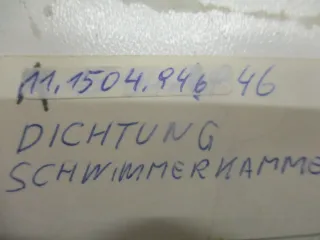 11.1504.946 46
DICHTUNG
SCHWIMMERKAMME